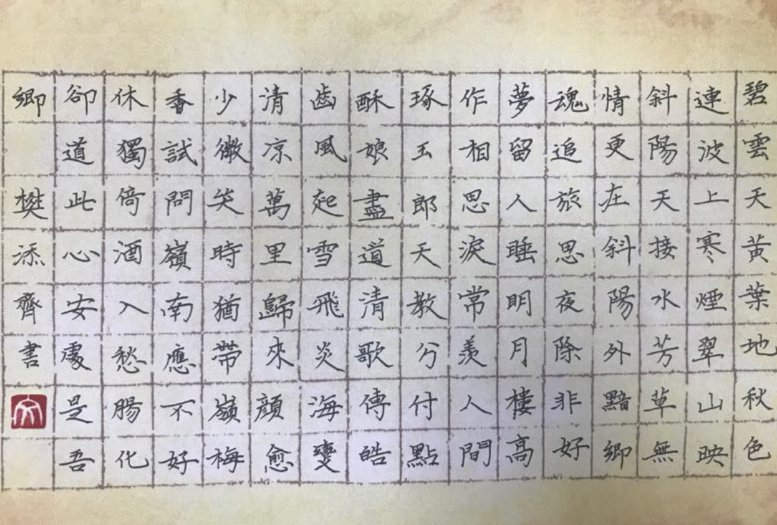 碧雲天黃葉地秋色
連波上寒煙翠山映
斜陽天接水芳草無
情更在斜陽外黯鄉
魂追旅思夜除非好
夢留人睡明月樓高
作相思淚常羨人間
琢玉郎天教分付點
酥娘盡道清歌傳皓
齒風起雪飛炎海變
清凉萬里歸來顏愈
少微笑時猶帶嶺梅
香試問嶺南應不好
休獨倚酒入愁腸化
卻道此心安處是吾
鄉 樊添齊書